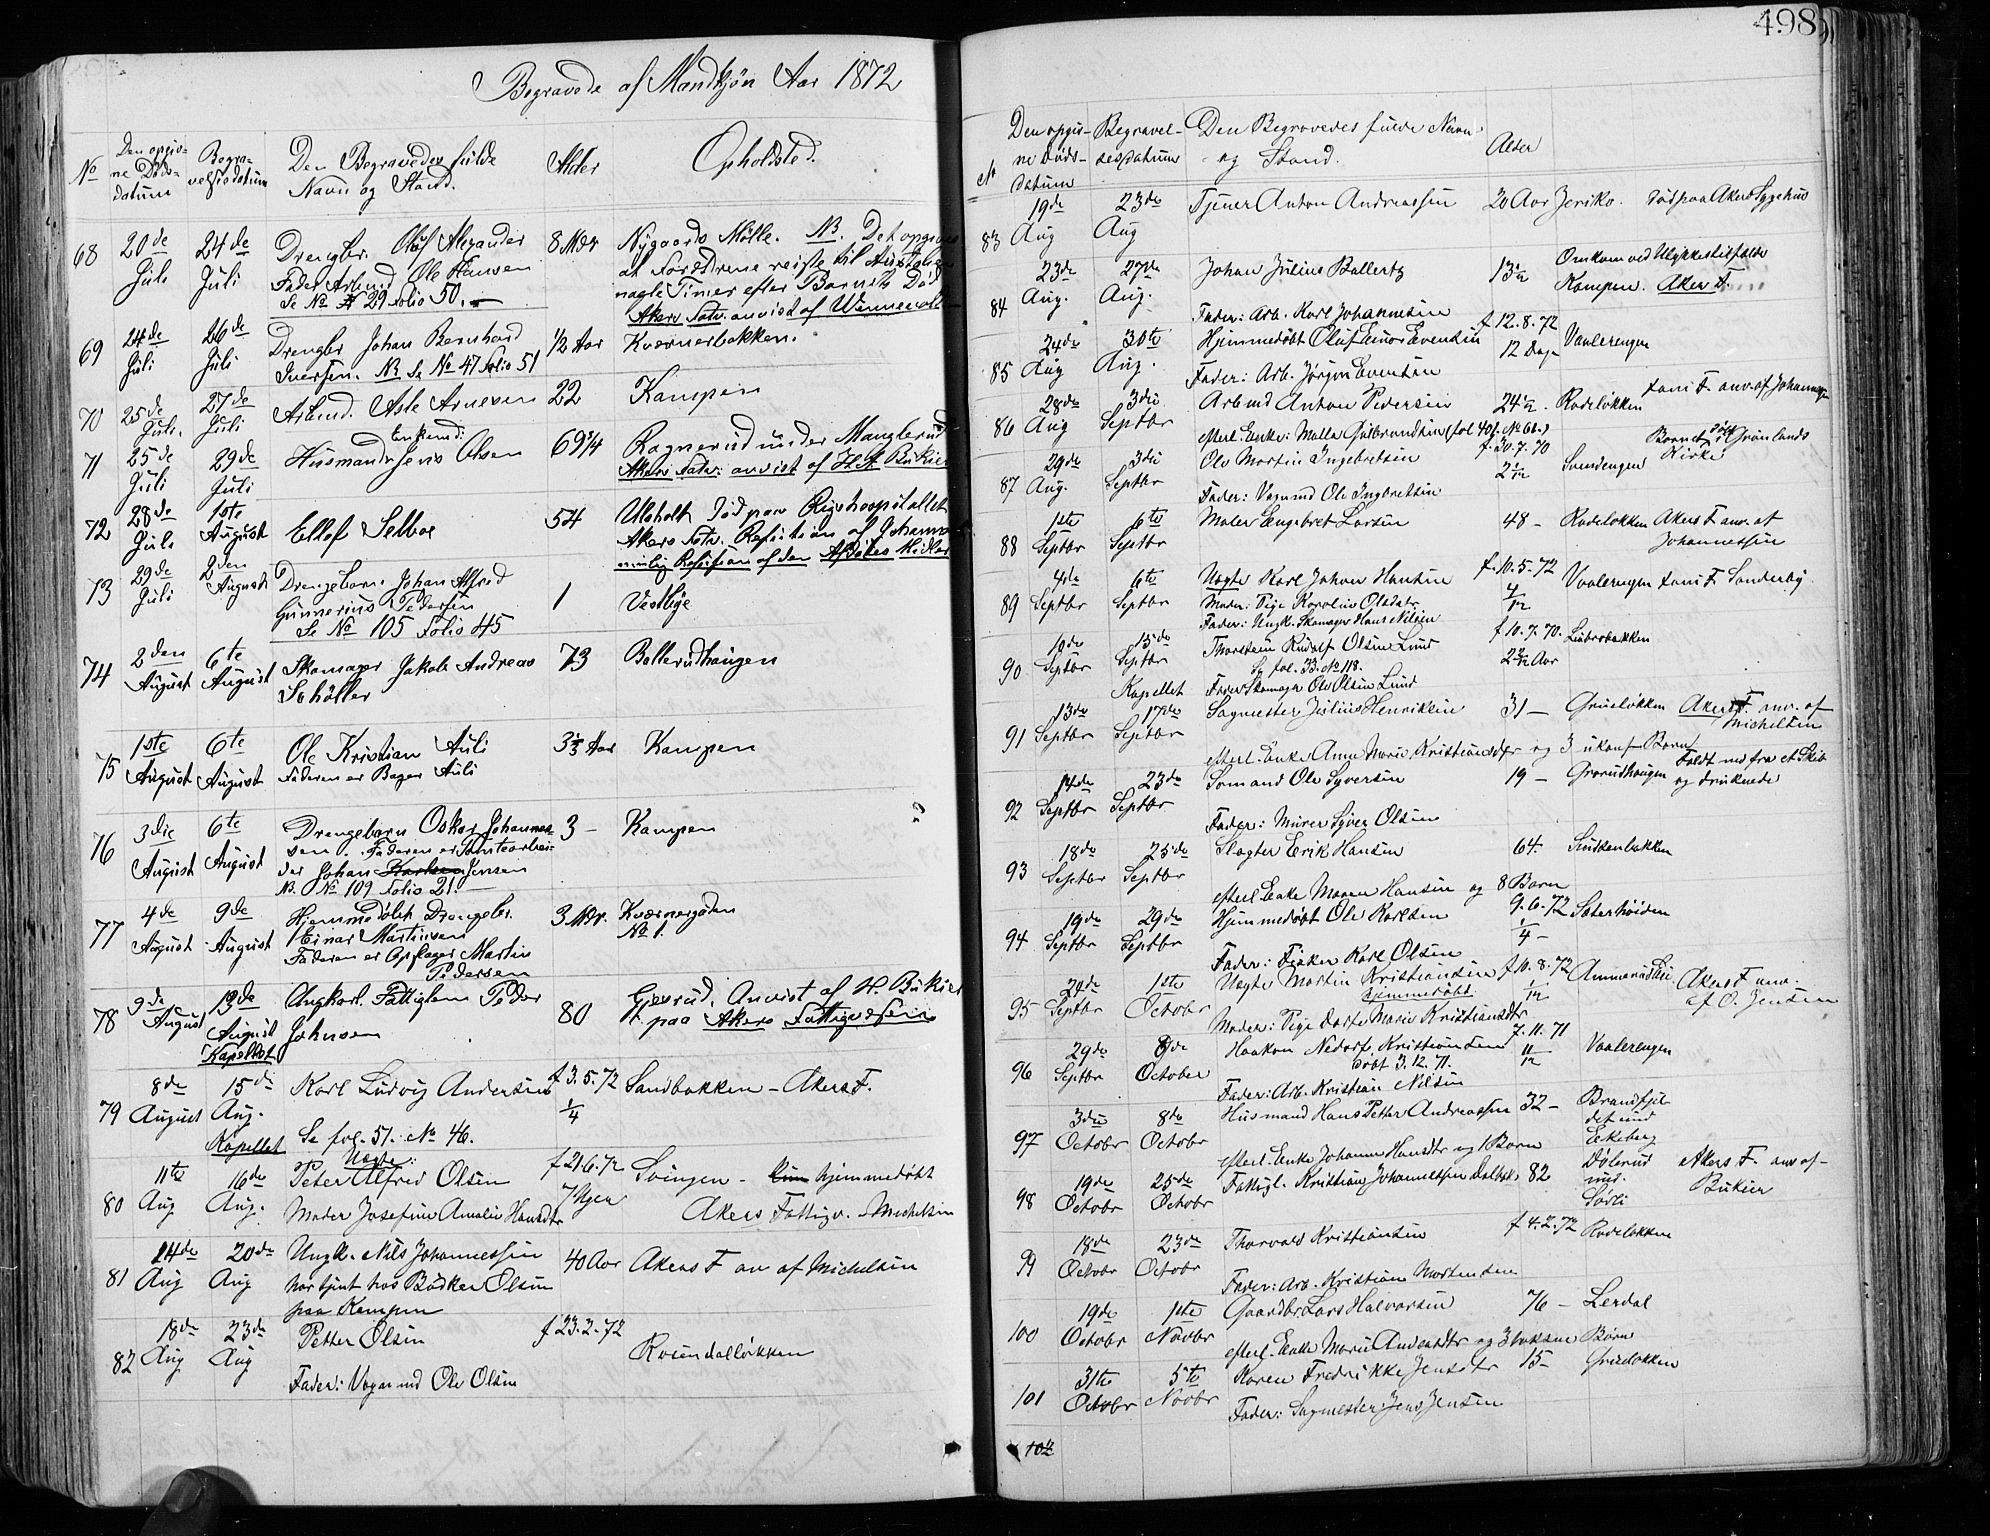 Begravede af Mandkjøn Aar 1872
No
Den opgiv-
ne Døds-
datum
Begra-
velsesdatum
Den Begravedes fulde
Navn og Stand.
Alder
Opholdsted.
68 20de Juli 24de Juli Drengbr. Olaf Alexander 8 Mdr Nygaards Mølle. NB. Det opgives
Fader Arbmd Ole Hansen at Forældrene reiste til
Se No 29 Folio 50. nogle Timer efter Barnets Død
Akers Fatv. anvist af Wennevold
69 24de Juli 26de Juli Drengbr Johan Bernhard 1/2 Aar Kværnerbakken.
Iversen. NB Se No 47 Folio 51
70 25de Juli. 27de Juli Arbmd. Asle Arnesen 22 Kampen
71 25de Juli 29de Juli Husmand Enkemd: Jens Olsen 69 3/4 Ragnerud under Manglerud
Akers Fatv: anvist af H. Bukier
72 28de Juli 1ste August Ellef Selboe 54 Ulsholt død paa Rigshospitallet
Akers Fatv. af
Refusion af den Afdødes Midler
73 29de Juli 2den August Drengebarn Johan Alfred 1 Vestbye
Gunnerius Pedersen
Se No 105 Folio 45
74 2den August 6te August Skomager Jakob Andreas 73 Bollerudhaugen
Schøller
75 1ste August 6te August Ole Kristian Auli 3 1/2 Aar Kampen
Faderen er Bager Auli
76 3die August 6te August Drengebarn Oskar Johannes- 3 – Kampen
sen. Faderen er Tomtearbei-
der Johan Karlsen Jensen
NB. No 109 Folio 21
77 4de August 9de August Hjemmedøbt Drengebr. 3 Mdr. Kværnergaden
Einar Martinsen No 1.
Faderen er Opslager Martin
Pedersen
78 9de August 13de August Kapellet Ungkarl. Fattiglem Peder 80 Gjersrud. Anvist af H. Bukier
Johnsen paa Akers Fattigvæsen
79 8de August 15de Aug. Kapellet Karl Ludvig Andersen f 3.5.72 1/4 Sandbakken – Akers F.
Se fol. 51. No 46.
80 11te Aug 16de Aug. Uægte: Peter Alfred Olsen f 21.6.72 Svingen – hjemmedøbt
Moder Josefine Amalie Hansdtr 7 Uger Akers Fattigv. Michelsen
81 14de Aug 20de Aug Ungk. Nils Johannessen 40 Aar Akers F anv af Michelsen
har tjent hos Bødker Olsen
paa Kampen
82 18de Aug 23de Aug Petter Olsen f 23.2.72 Rosendalløkken
Fader: Vognmd Ole Olsen
498
No
Den opgiv-
ne Døds-
datum
Begravel-
sesdatum
Den Begravedes fulde Navn
og Stand.
Alder
83 19de Aug 23de Aug Tjener Anton Andreassen 20 Aar Jeriko. død paa Akers Sygehus
84 23de Aug. 27de Aug. Johan Julius Ballertz 13 1/2 Omkom ved Ulykkestilfælde
Kampen. Akers F.
Fader: Arb. Karl Johannesen
85 24de Aug 30te Aug. Hjemmedøbt Oluf Einar Evensen f 12.8.72 12 Dage Vaalerengen
Fader: Arb. Jørgen Evensen
86 28de Aug 3die Septbr Arbmd Anton Pedersen 24 1/2. Rodeløkken F. anv. af Johannesen
efterl. Enke: Mathea Gulbrandsen (fol 40. No 66.)
87 29de Aug. 3die Septbr Ole Martin Ingebretsen f. 30.7.70 2 1/12 Svendengen Barnet døbt i Grønlands
Kirke
Fader: Vognmd Ole Ingbretsen
88 1ste Septbr 6te Septbr Maler Engebret Larsen 48 – Rodeløkken Akers F anv. af
Johannessen
89 4de Septbr 6te Septbr Uægte Karl Johan Hansen f. 10.5.72 4/12 Vaalerengen F. Sonderby
Moder: Pige Karoline Olsdatr
Fader: Ungk. Skomager Hans Nilsen
90 10de Septbr 13de Septbr Kapellet Thorstein Rudolf Olsen Lund f 10.7.70. 2 2/12 Aar Lodsbakken
Se fol. 33. No 118.
Fader Skomager Ole Olsen Lund
91 13de Septbr 17de Septbr Sagmester Julius Henriksen 31 – Grueløkken Akers F. anv. af
Michelsen
efterl. Enke Anne Marie Kristiansdtr og 3 ukonf. Børn
92 14de Septbr 23de Septbr Sømand Ole Syversen 19 – Grorudhaugen Faldt ned fra et Skib
og druknede
Fader: Murer Syver Olsen
93 18de Septbr 25de Septbr Slagter Erik Hansen 64. Sinkenbakken
efterl Enke Maren Hansen og 8 Børn
94 19de Septbr 29de Septbr Hjemmedøbt Ole Karlsen 9.6.72 1/4 – Sæterhøiden
Fader: Fisker Karl Olsen
95 20de Septbr 1ste October Uægte Martin Kristiansen f 10.8.72 1/12 Ammerud Akers F anv.
hjemmedøbt af O. Jensen
Moder: Pige Marie Kristiansdtr
96 29de Septbr 8de October Haakon Kristiansen 7.11.71 11/12 Vaalerengen
døbt 3.12.71.
Fader: Arb. Kristian Nilsen
97 3die Octobr 8de Octobr Husmand Hans Petter Andreassen 32 – Brandfjel-
det und
Ekeberg
efterl. Enke Johanne Hansdtr og 1 Barn
98 19de Octobr 25de Octobr Fattigl. Kristian Johannessen 82 Dølerud Akers F. anv af
und. Bukier
99 18de Octobr 23de Octobr Thorvald Kristiansen f 4.2.72 Rodeløkken
Fader: Arb. Kristian Mortensen
100 19de Octobr 1ste Novbr Gaardbr. Lars Halvorsen 76 – Lerdal
efterl. Enke Marie Andersdtr og 3 voksne Børn
101 31te Octobr 5te Novbr Karen Fredrikke Jensdtr 15 – Grueløkken
Fader: Sagmester: Jens Jensen
102